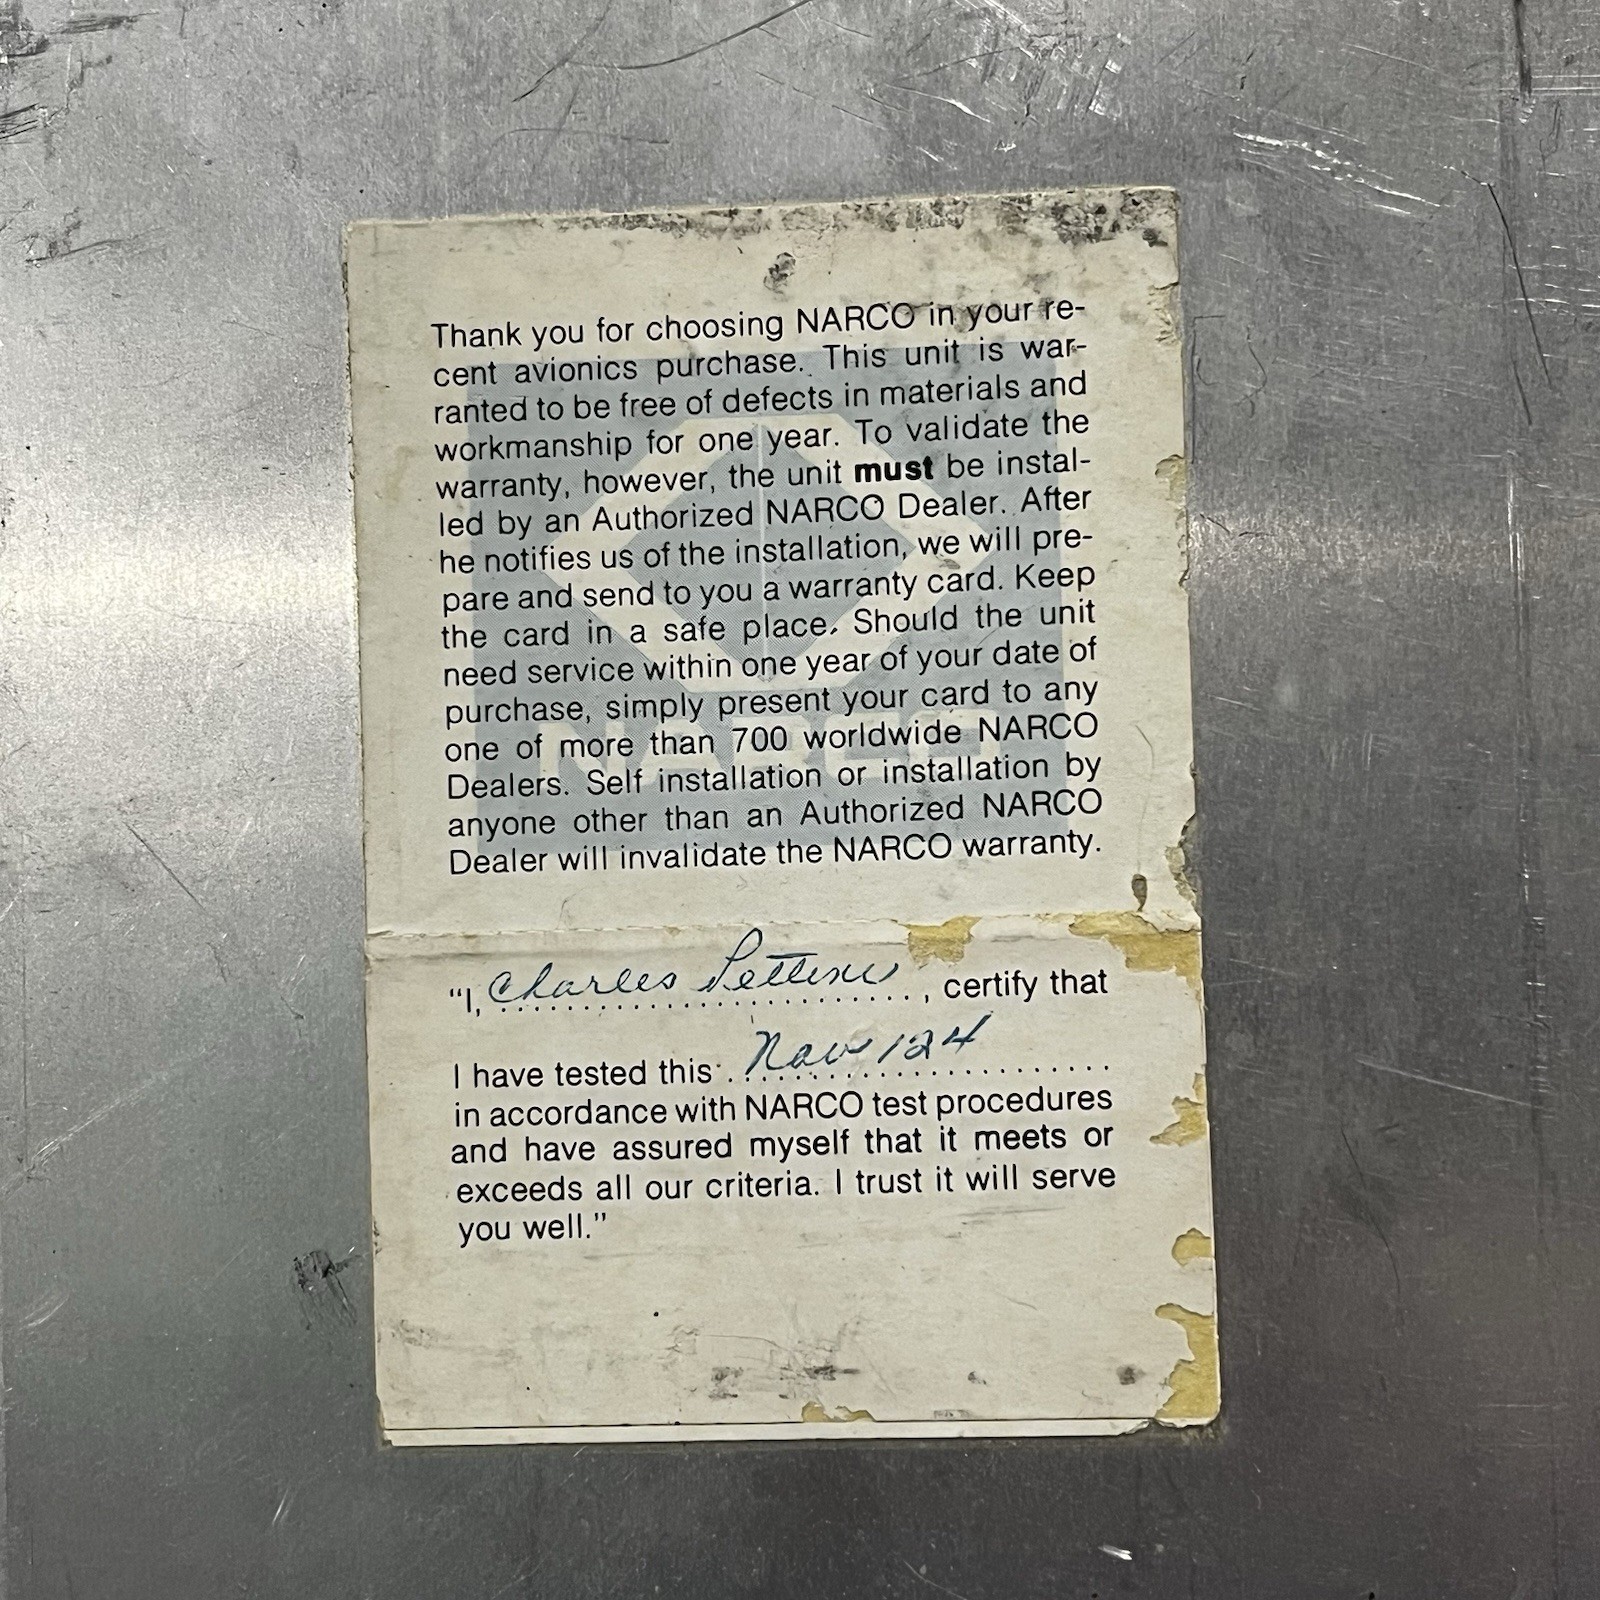 Thank you for choosing NARCO in your re-
cent avionics purchase. This unit is war-
ranted to be free of defects in materials and
workmanship for one year. To validate the
warranty, however, the unit must be instal-
led by an Authorized NARCO Dealer. After
he notifies us of the installation, we will pre-
pare and send to you a warranty card. Keep
the card in a safe place. Should the unit
need service within one year of your date of
purchase, simply present your card to any
one of more than 700 worldwide NARCO
Dealers. Self installation or installation by
anyone other than an Authorized NARCO
Dealer will invalidate the NARCO warranty.
NARCO
"I, Charles , certify that
I have tested this Nav 124
in accordance with NARCO test procedures
and have assured myself that it meets or
exceeds all our criteria. I trust it will serve
you well."